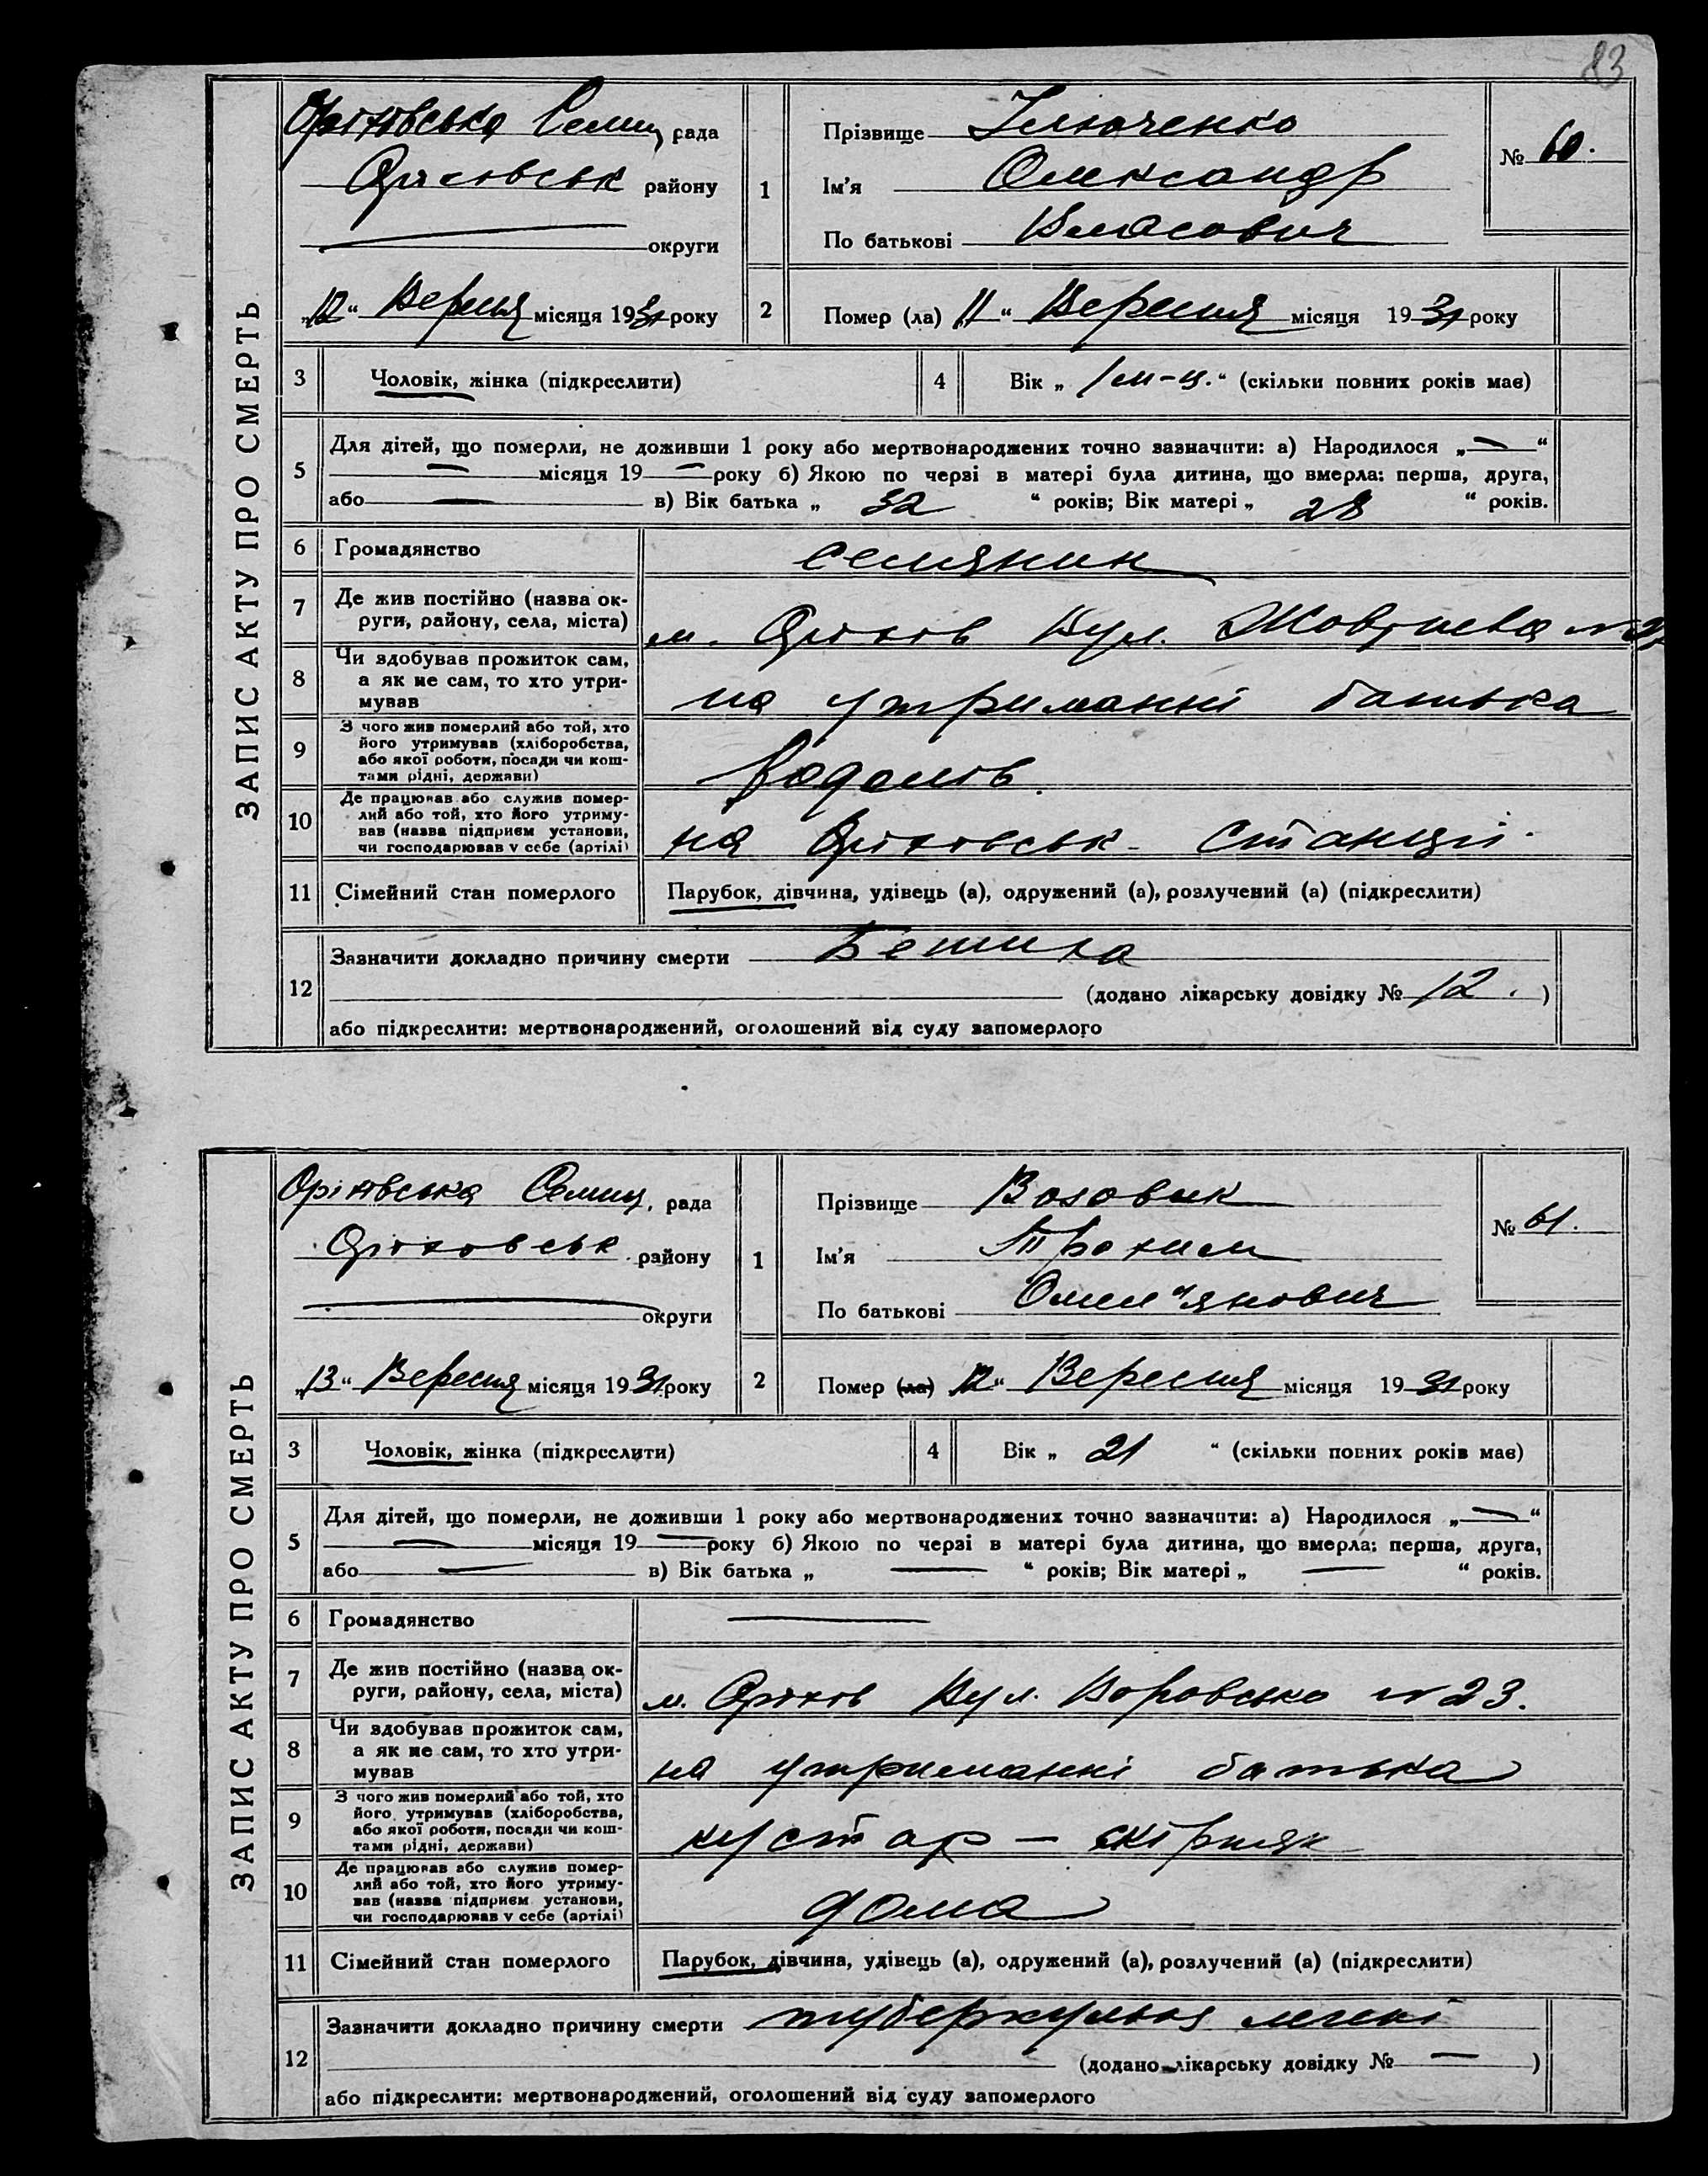 83
ЗАПИС АКТУ ПРО СМЕРТЬ
Оріхівська Селищ. рада
Оріховськ району
округи
„12“ Вересня місяця 1931 року
1
Прізвище
Ім'я Олександр
По батькові Власович
№ 60.
2
Помер (ла) „11“ Вересня місяця 1931 року
3
Чоловік, жінка (підкреслити)
4
Вік „1 м-ц.“ (скільки повних років має)
5
Для дітей, що померли, не доживши 1 року або мертвонароджених точно зазначити: а) Народилося „—“
— місяця 19 — року б) Якою по черзі в матері була дитина, що вмерла: перша, друга,
або — в) Вік батька „ 32 “ років; Вік матері „ 28 “ років.
6
Громадянство
селянин
7
Де жив постійно (назва ок-
руги, району, села, міста)
м. Оріхів Вул. Жовтнева №
8
Чи здобував прожиток сам,
а як не сам, то хто утри-
мував
на утриманні батька
9
З чого жив померлий або той, хто
його утримував (хліборобства,
або якої роботи, посади чи кош-
тами рідні, держави)
10
Де працював або служив помер-
лий або той, хто його утриму-
вав (назва підприєм установи,
чи господарював у себе (артілі)
на Оріховськ. Станції.
11
Сімейний стан померлого
Парубок, дівчина, удівець (а), одружений (а), розлучений (а) (підкреслити)
12
Зазначити докладно причину смерти Бешиха
(додано лікарську довідку № 12. )
або підкреслити: мертвонароджений, оголошений від суду запомерлого
ЗАПИС АКТУ ПРО СМЕРТЬ
Оріхівська Селищ. рада
Оріховськ району
округи
„13“ Вересня місяця 1931 року
1
Прізвище Возовик
Ім'я Трохим
По батькові Омел"янович
№ 61.
2
Помер (ла) „12“ Вересня місяця 1931 року
3
Чоловік, жінка (підкреслити)
4
Вік „ 21 “ (скільки повних років має)
5
Для дітей, що померли, не доживши 1 року або мертвонароджених точно зазначити: а) Народилося „—“
— місяця 19 — року б) Якою по черзі в матері була дитина, що вмерла: перша, друга,
або — в) Вік батька „ — “ років; Вік матері „ — “ років.
6
Громадянство
—
7
Де жив постійно (назва ок-
руги, району, села, міста)
м. Оріхів Вул. Воровсько № 23.
8
Чи здобував прожиток сам,
а як не сам, то хто утри-
мував
на утриманні батька
9
З чого жив померлий або той, хто
його утримував (хліборобства,
або якої роботи, посади чи кош-
тами рідні, держави)
кустар — скірняк
10
Де працював або служив помер-
лий або той, хто його утриму-
вав (назва підприєм установи,
чи господарював у себе (артілі)
дома
11
Сімейний стан померлого
Парубок, дівчина, удівець (а), одружений (а), розлучений (а) (підкреслити)
12
Зазначити докладно причину смерти туберкульоз
(додано лікарську довідку № — )
або підкреслити: мертвонароджений, оголошений від суду запомерлого